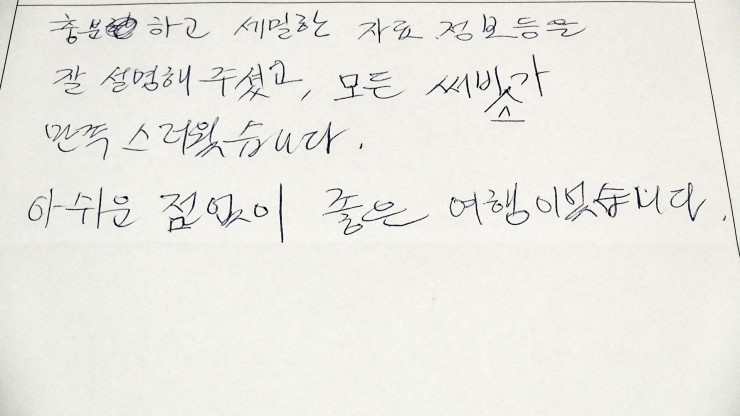 충분하고 세밀한 자료 정보등을
잘 설명해 주셨고, 모든 써비스가
만족 스러웠습니다.
아쉬운 점없이 좋은 여행이었습니다.